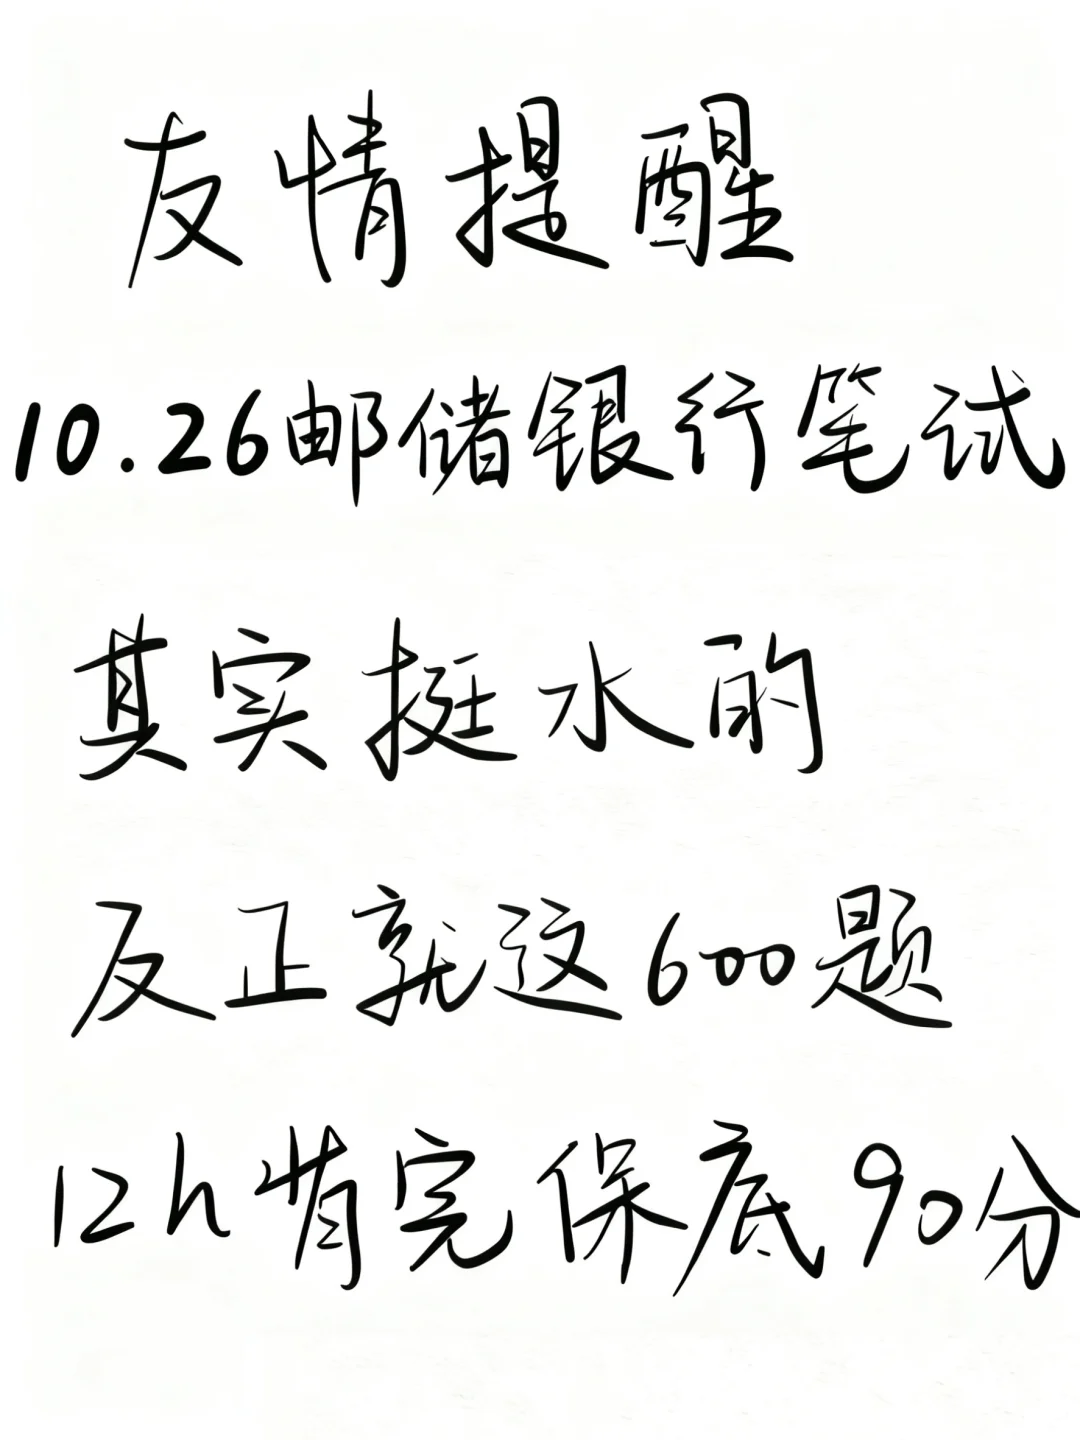 友情提醒
10.26邮储银行笔试
其实挺水的
反正就这600题
12h背完保底90分